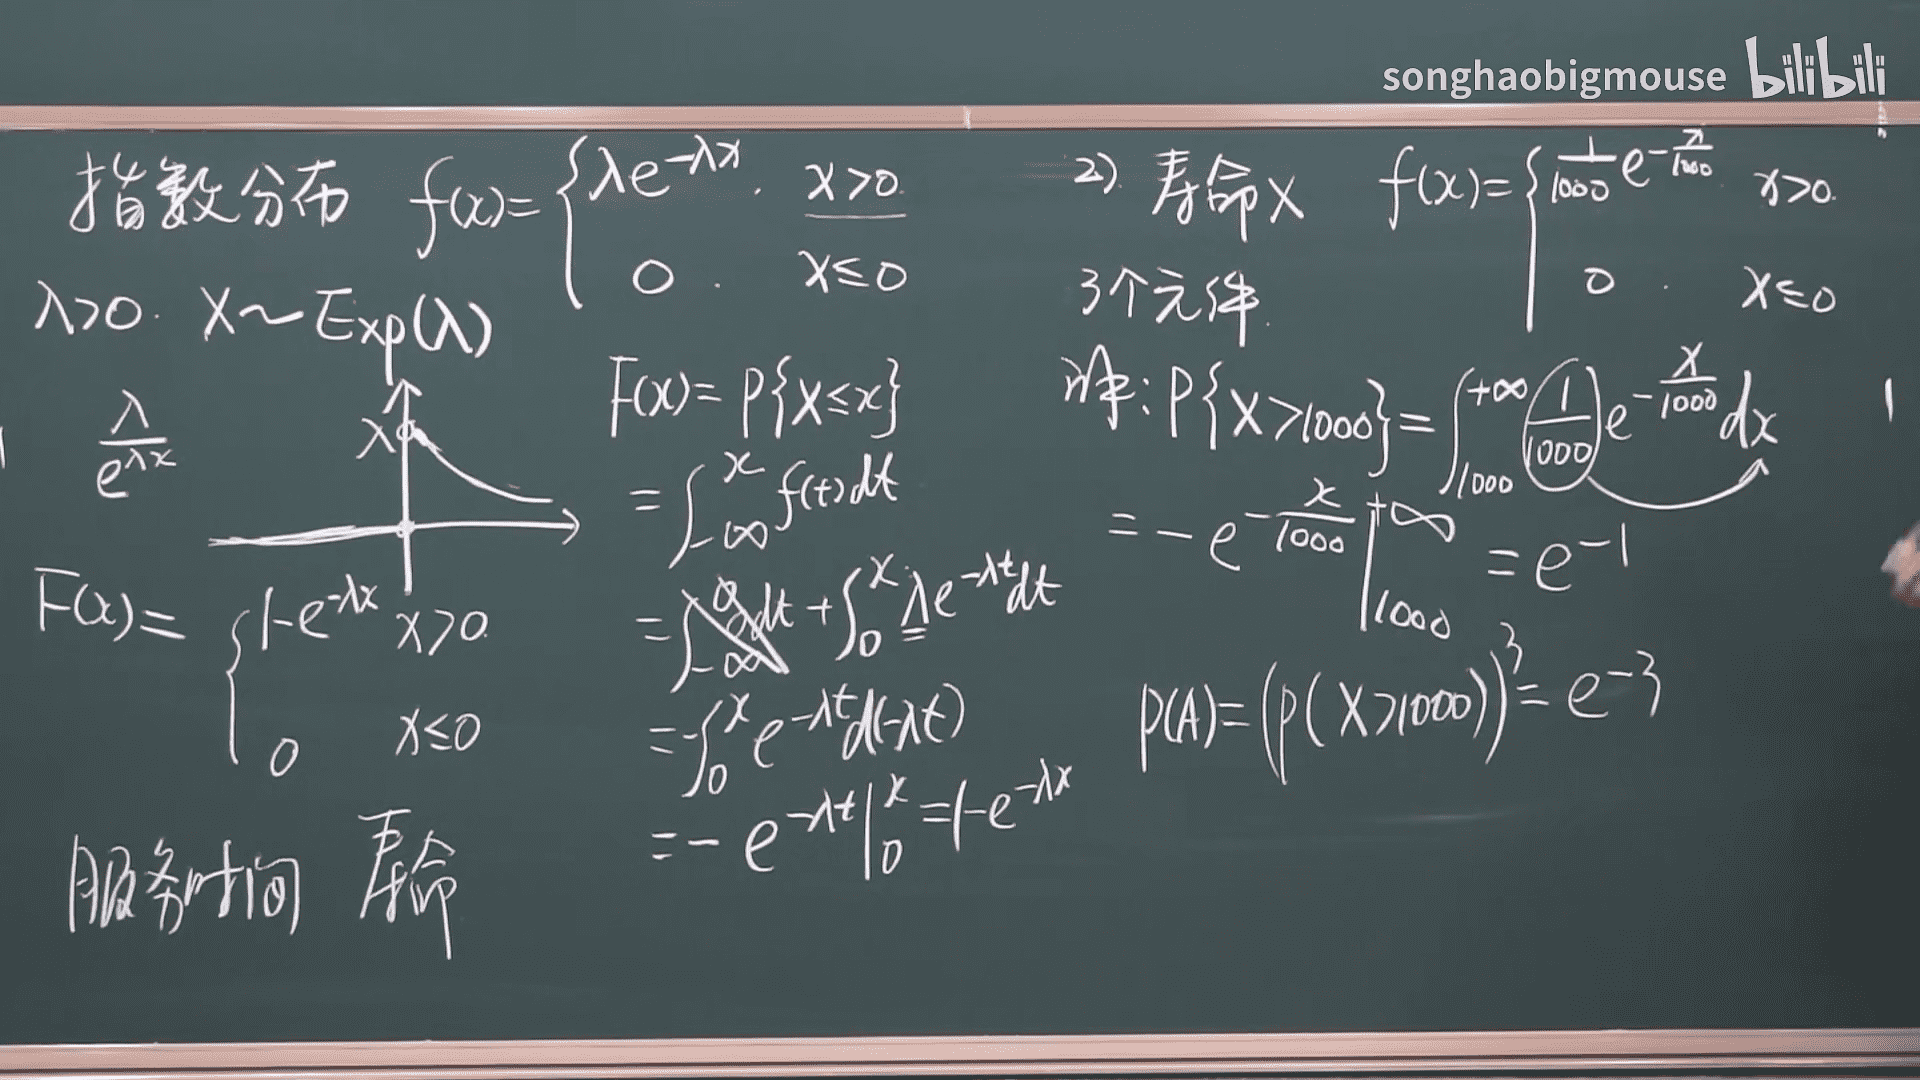 songhaobigmouse bilibili
指数分布 f(x)= { λe^{-λx}. x>0.
0. x≤0
λ>0. X~Exp(λ)
λ/e^{λx}
λ
F(x)= { 1-e^{-λx} x>0.
0 x≤0
服务时间 寿命
F(x)= P{X≤x}
=∫_{-∞}^{x} f(t)dt
=∫_{-∞}^{0} 0dt+∫_{0}^{x} λe^{-λt}dt
=-∫_{0}^{x} e^{-λt}d(-λt)
=-e^{-λt}|_{0}^{x}=1-e^{-λx}
2). 寿命X f(x)= { 1/1000 e^{-x/1000} x>0.
0. x≤0
3个元件.
解: P{X>1000}=∫_{1000}^{+∞} 1/1000 e^{-x/1000}dx
=-e^{-x/1000}|_{1000}^{+∞} =e^{-1}
P(A)=(P(X>1000))^3=e^{-3}